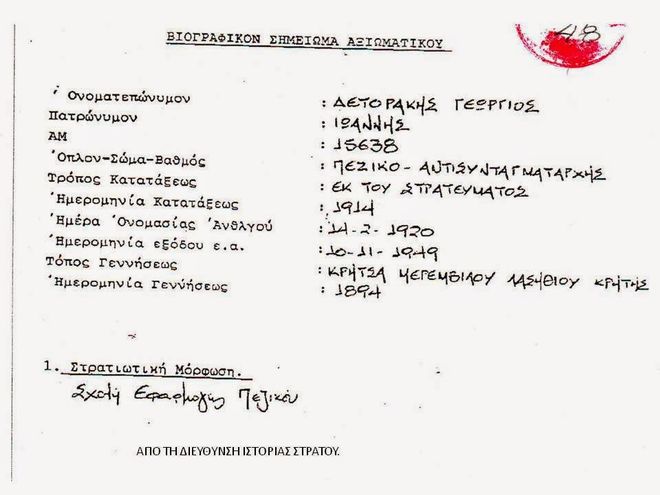 48
ΒΙΟΓΡΑΦΙΚΟΝ ΣΗΜΕΙΩΜΑ ΑΞΙΩΜΑΤΙΚΟΥ
Ὀνοματεπώνυμον : ΔΕΤΟΡΑΚΗΣ ΓΕΩΡΓΙΟΣ
Πατρώνυμον : ΙΩΑΝΝΗΣ
ΑΜ : 15638
Ὅπλον-Σῶμα-Βαθμός : ΠΕΖΙΚΟ - ΑΝΤΙΣΥΝΤΑΓΜΑΤΑΡΧΗΣ
Τρόπος Κατατάξεως : ΕΚ ΤΟΥ ΣΤΡΑΤΕΥΜΑΤΟΣ
Ἡμερομηνία Κατατάξεως : 1914
Ἡμέρα Ὀνομασίας Ἀνθλγού : 14-2-1920
Ἡμερομηνία εξόδου ε.α. : 10-11-1949
Τόπος Γεννήσεως : ΚΡΗΤΣΑ ΜΕΡΕΜΒΙΛΟΥ ΛΑΣΗΘΙΟΥ ΚΡΗΤΗΣ
Ἡμερομηνία Γεννήσεως : 1894
1. Στρατιωτική Μόρφωση.
Σχολή Εφαρμογής Πεζικού
ΑΠΟ ΤΗ ΔΙΕΥΘΥΝΣΗ ΙΣΤΟΡΙΑΣ ΣΤΡΑΤΟΥ.